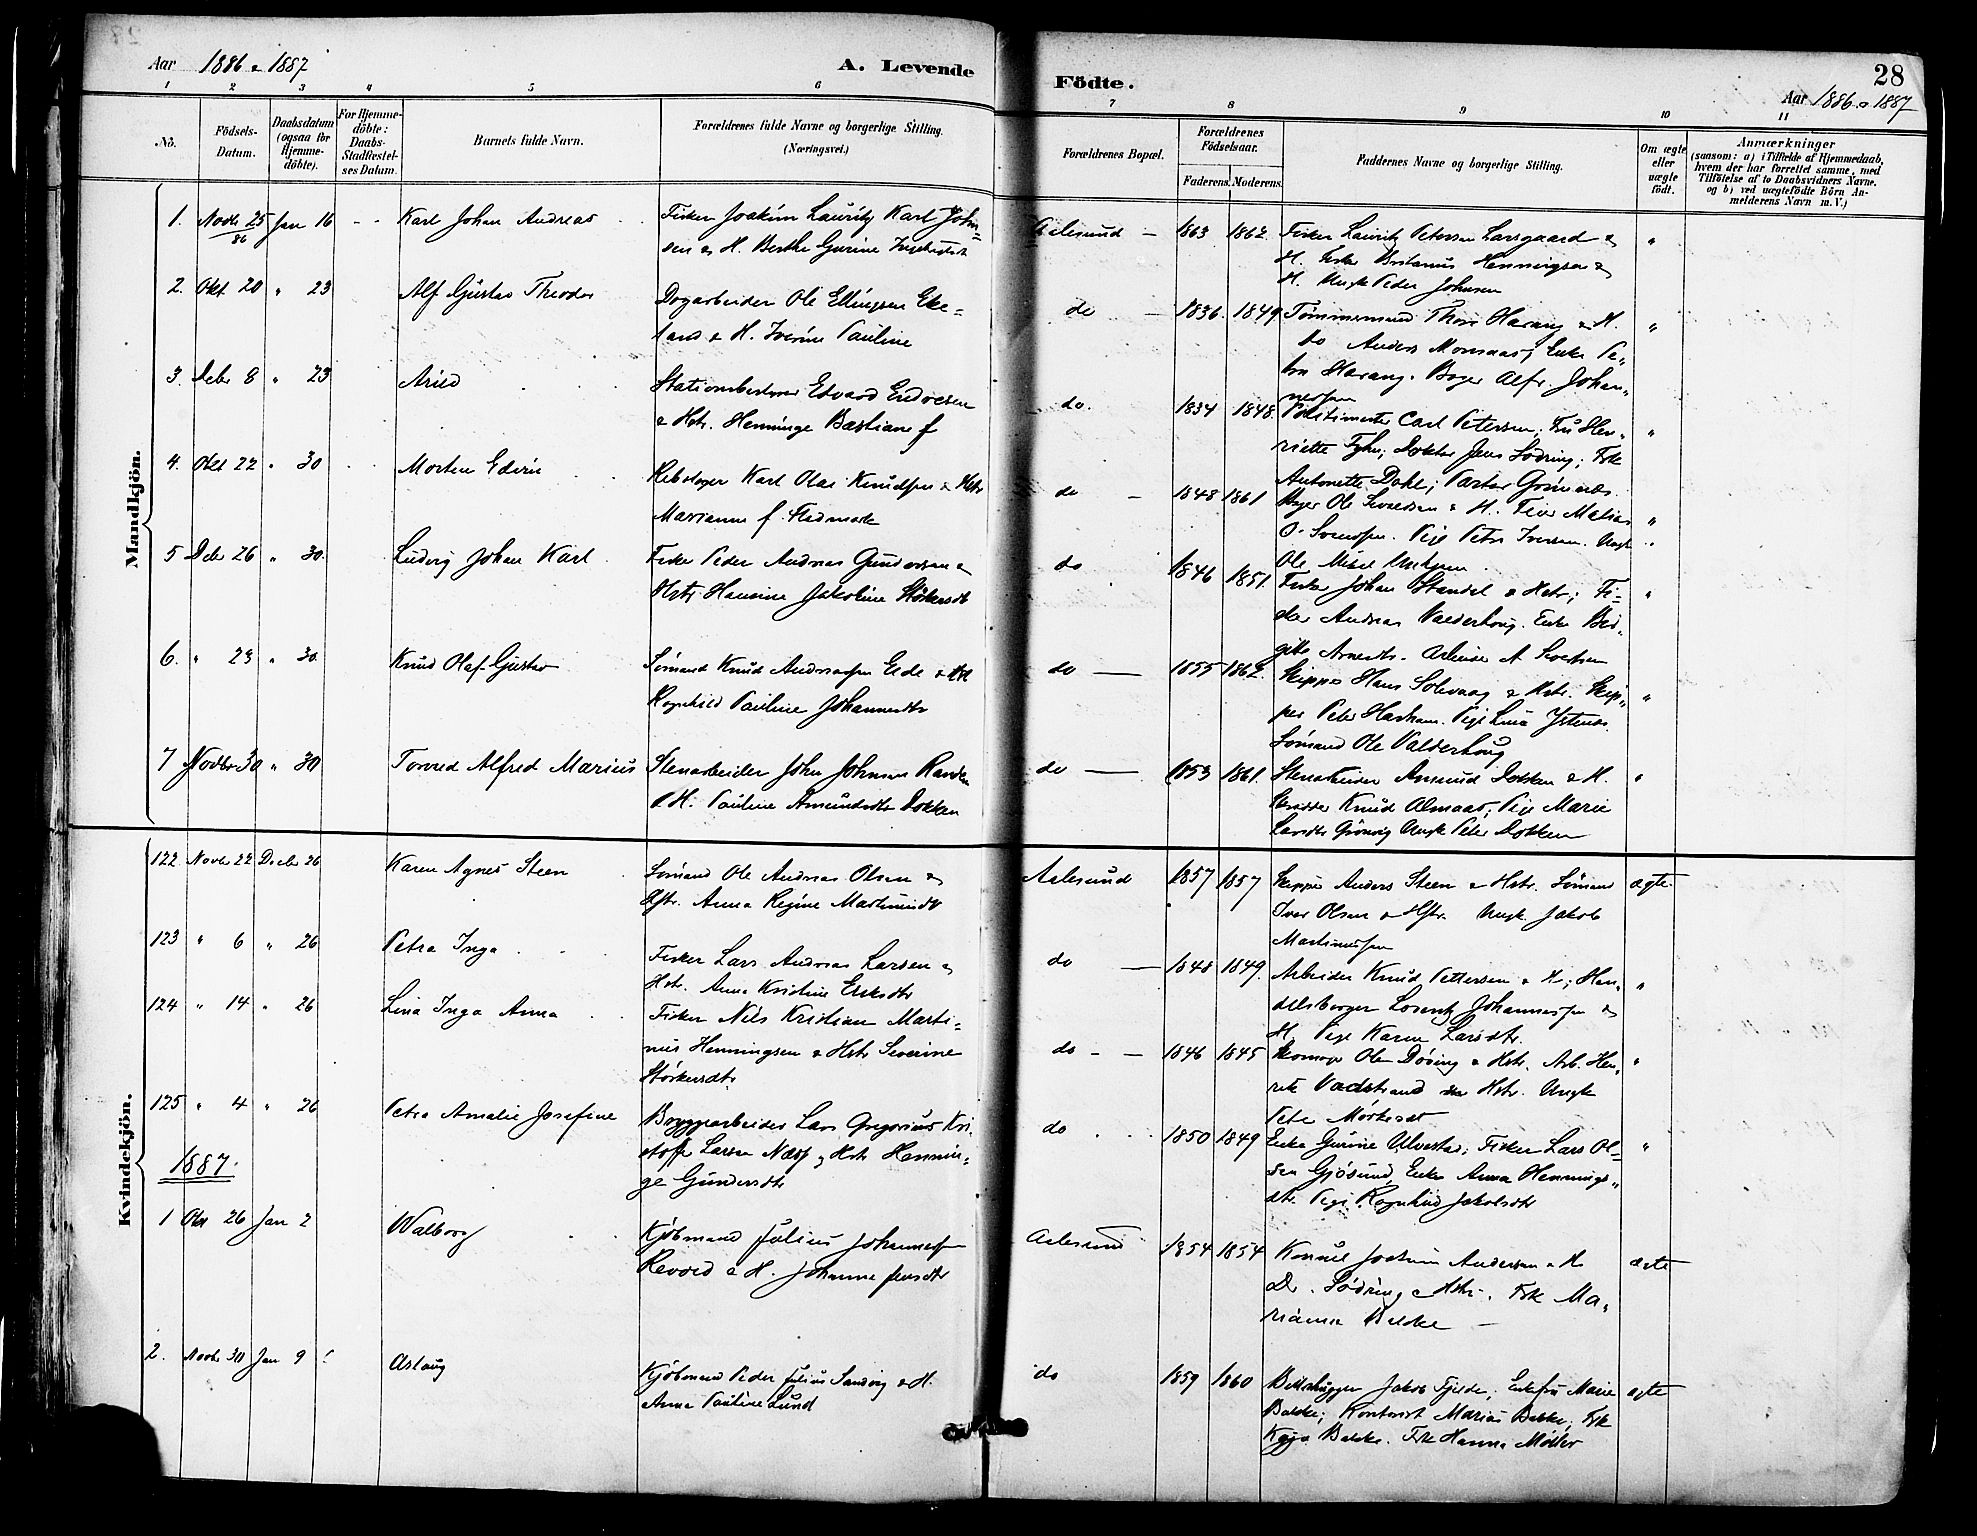 Aar 1886 & 1887
A. Levende
Födte.
28
Aar 1886 & 1887
1 2 3 4 5 6 7 8 9 10 11
No.
Födsels-Datum.
Daabsdatum (ogsaa for Hjemmedöbte).
For Hjemmedöbte: Daabs-Stadfæstelses Datum.
Barnets fulde Navn.
Forældrenes fulde Navne og borgerlige Stilling.
(Næringsvei.)
Forældrenes Bopæl.
Forældrenes Födselsaar.
Faderens. Moderens.
Faddernes Navne og borgerlige Stilling.
Om ægte eller uægte födt.
Anmærkninger
(saasom: a) i Tilfælde af Hjemmedaab, hvem der har forrettet samme, med Tilföielse af to Daabsvidners Navne, og b) ved uægtefödte Börn Anmelderens Navn m. V.)
Mandkjön.
1. Novbr 25/86 Jan 16 - - Karl Johan Andreas
Fisker Joakim Lauritz Karl John=
sen & H. Berthe Gurine
Aalesund - 1863 1862. Fisker Lauritz Petersen Larsgaard &
H. Enke Henningsen &
H. Ungk Peder Johnsen
2. Okt 20 " 23 Alf Gustav Theodor
Dagarbeider Ole Ellingsen Eke=
land & H. Iverine Pauline
do - 1836. 1849 Tømmermand Thore Harang & H.
do Anders Monsaas, Enke Pe„
tra Harang. Bager Alfr. Johan„
nessen
3. Debr 8 " 23 Arild
Stationsbestyrer Edvard Endresen
& Hstr. Henninge Bastiane f
do. 1834 1848. Politimester Carl Petersen, Fru Hen„
riette Fyhn; Doktor Jens Lödring; Frk
Antonette Dahl; Pastor Grimnæs.
4. Okt 22 " 30 Morten Edvin
Rebslager Karl Olai Knudsen & Hstr
Marianne f. Flademark
do - 1848 1861 Bager Ole Sivertsen & H. Matias
O. Svendsen. Pige Petra Iversen. Ungk
Ole Mikal
5 Debr 26 " 30. Ludvig Johan Karl
Fisker Peder Andreas Gundersen &
Hstr Hansine Jakoline Störkersdtr
do 1846 1851. Fisker Johan Standal & Hstr; Fi-
sker Andreas Valderhoug. Enke Bir„
gitte Arnesdtr. Arbeider A Sivertsen
6. " 23 " 30. Knud Olaf Gustav
Sömand Knud Andreassen Eide & Hstr
Ragnhild Pauline Johannesdtr
do — 1855 1862. Skipper Hans Solevaag & Hstr. Skip„
per Peter Harham. Pige Lina
Sömand Ole Valderhoug
7 Novbr 30 " 30 Torvald Alfred Marius
Stenarbeider John Johnsen Randen
& H. Pauline Amundsdtr Dokken
do — 1853 1861. Stenarbeider Amund Dokken & H.
Skrædder Knud Almaas, Pige Marie
Larsdtr Grönvig Ungk Peter Dokken
Kvindekjön.
122. Novbr 22 Decbr 26 Karen Agnes Steen
Sömand Ole Andreas Olsen &
Hstr. Anna Regine Martinusdtr
Aalesund 1857 1857 Skipper Anders Steen & Hstr. Sömand
Iver Olsen & Hstr. Ungk Jakob
Martinussen
ægte.
123 " 6 " 26 Petra Inga
Fisker Lars Andreas Larsen &
Hstr. Anna Kristine Eriksdtr
do — 1848 1849. Arbeider Knud Pettersen & H; Han„
delsborger Lorentz Johannessen &
H. Pige Karen Larsdtr.
124 " 14 " 26 Lina Inga Anna
Fisker Nils Kristian Marti=
nus Henningsen & Hstr Severine
Störkersdtr
do - - 1846 1845 Skomager Ole Döving & Hstr. Arb. Hen„
rik Vadstrand & Hstr. Ungk
125 " 4 " 26 Petra Amalie Josefine
Bryggearbeider Lars Gregorius Kri-
stoffer Larsen Næss & Hstr Hennin„
ge Gundersdtr
do 1850 1849 Enke Gurine Ulvestad; Fisker Lars Ol=
sen Gjösund, Enke Anna Hennings„
dtr. Pige Ragnhild Jakobsdtr
1887.
1 Okt 26 Jan 2 Walborg
Kjöbmand Julius Johannessen
Revold & H. Johanne Jensdtr
Aalesund 1854 1854 Konsul Joakim Andersen & H
Dr. Lödring & Hstr. Frk Ma„
rianna Balcke —
ægte
2. Novbr 30 Jan 9 Aslaug
Kjöbmand Peder Julius Sandvig & H.
Anna Pauline Lund
do 1859 1860 Billedhugger Jakob Fjelde; Enkefru Marie
Balcke; Kontorist Marius Balcke, Frk
Kaja Balcke. Frk Hanna Möller
ægte